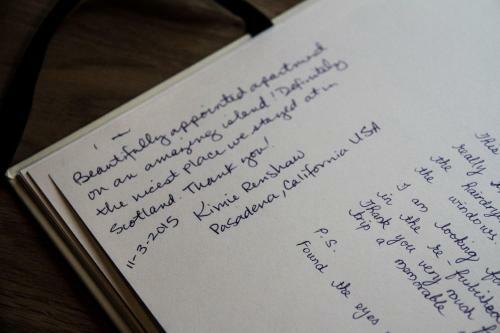 Beautifully appointed apartment
on an amazing island! Definitely
the nicest place we stayed at in
Scotland. Thank you!
Kimie Renshaw
11-3-2015 Pasadena, California USA
This
really
the windows.
I am looking
in the re-furbished
Thank you very much
trip a memorable
P.S.
Found the eyes